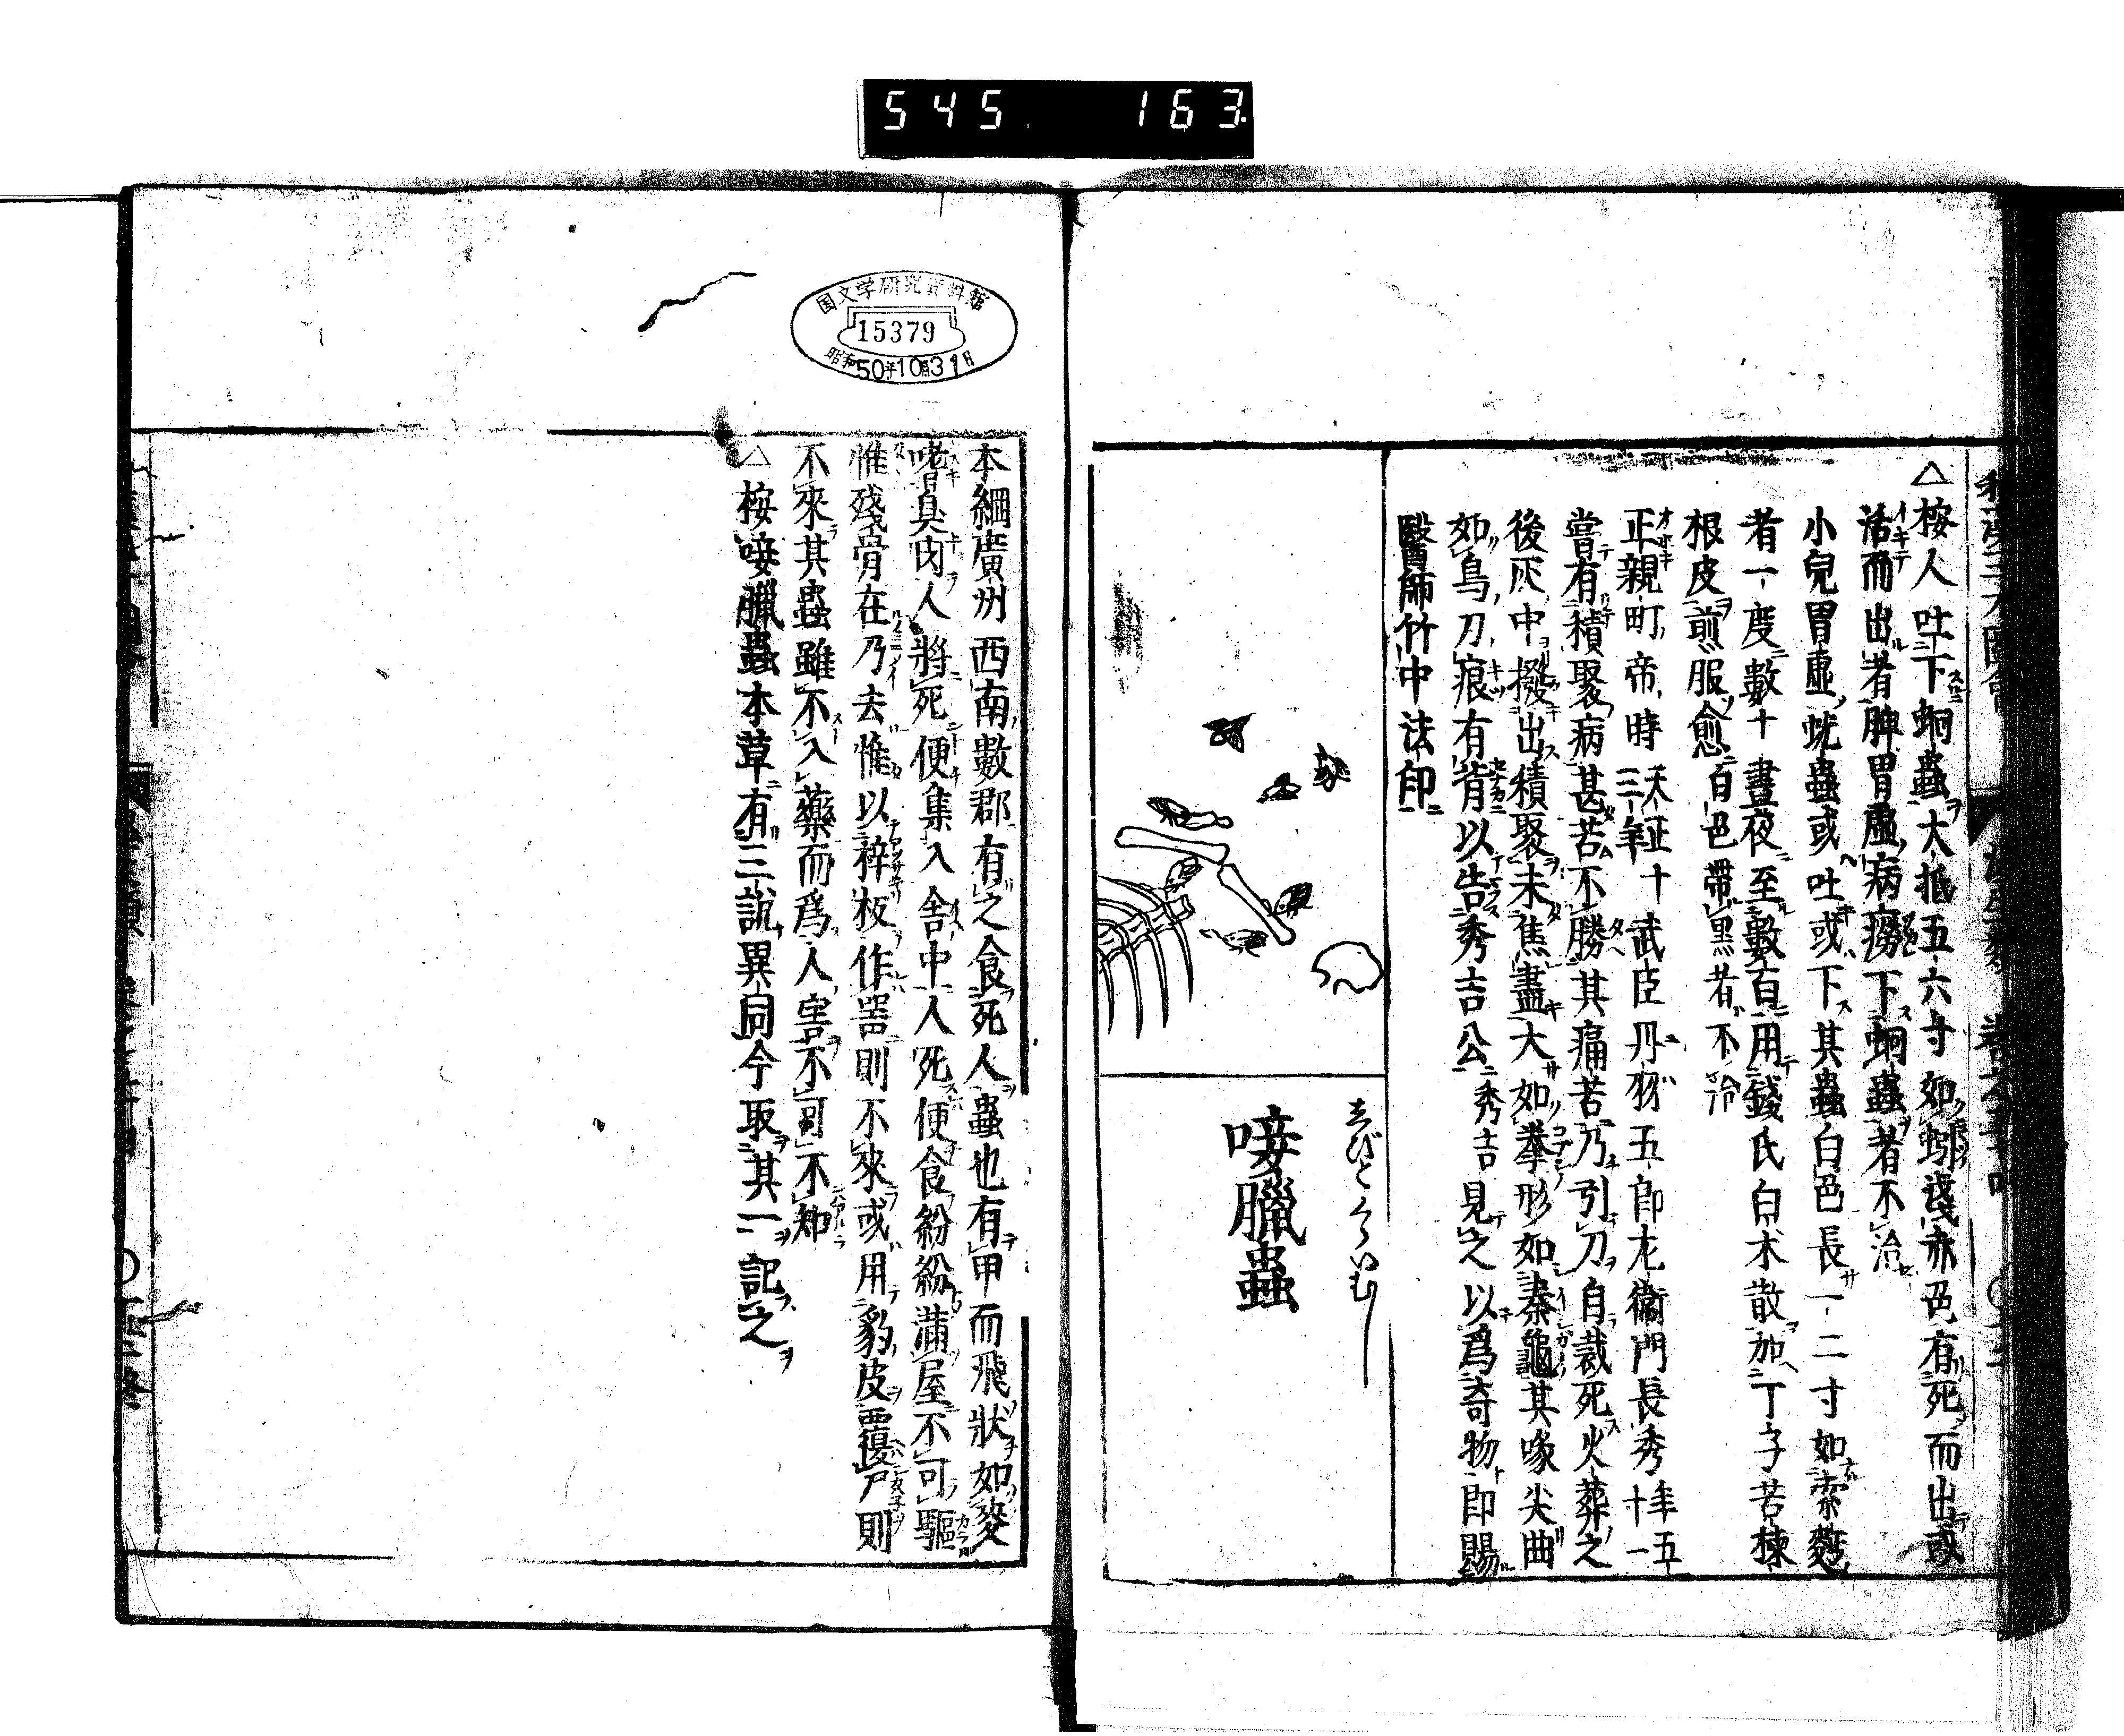 545 163
△桉人吐下蚘蟲大抵五六寸如蚓淺赤色有死而出或
活而出者脾胃虛病癆下蚘蟲者不治
小兒胃虛蚘蟲或吐或下其蟲白色長一二寸如索麪
者一度數十晝夜至數百用錢氏白朮散加丁子苦楝
根皮煎服愈白色帶黒者不治
正親町帝時天正十三年武臣丹羽五郎左衞門長秀年五十一
嘗有積聚病甚苦不勝其痛苦乃引刀自裁死火葬之
後灰中撥出積聚未焦盡大如拳形如秦龜其喙尖曲
如鳥刀痕有背以告秀吉公秀吉見之以爲奇物即賜
醫師竹中法印
志びとくらいむし
唼臘蟲
国文学研究資料館
15379
昭和50年10月31日
本綱廣州西南數郡有之食死人蟲也有甲而飛狀如麥
嗜臭肉人將死便集入舍中人死便食紛紛滿屋不可驅
惟殘骨在乃去惟以梓板作噐則不來或用豹皮覆尸則
不來其蟲雖不入藥而爲人害不可不知
△桉唼臘蟲本草有三說異同今取其一記之